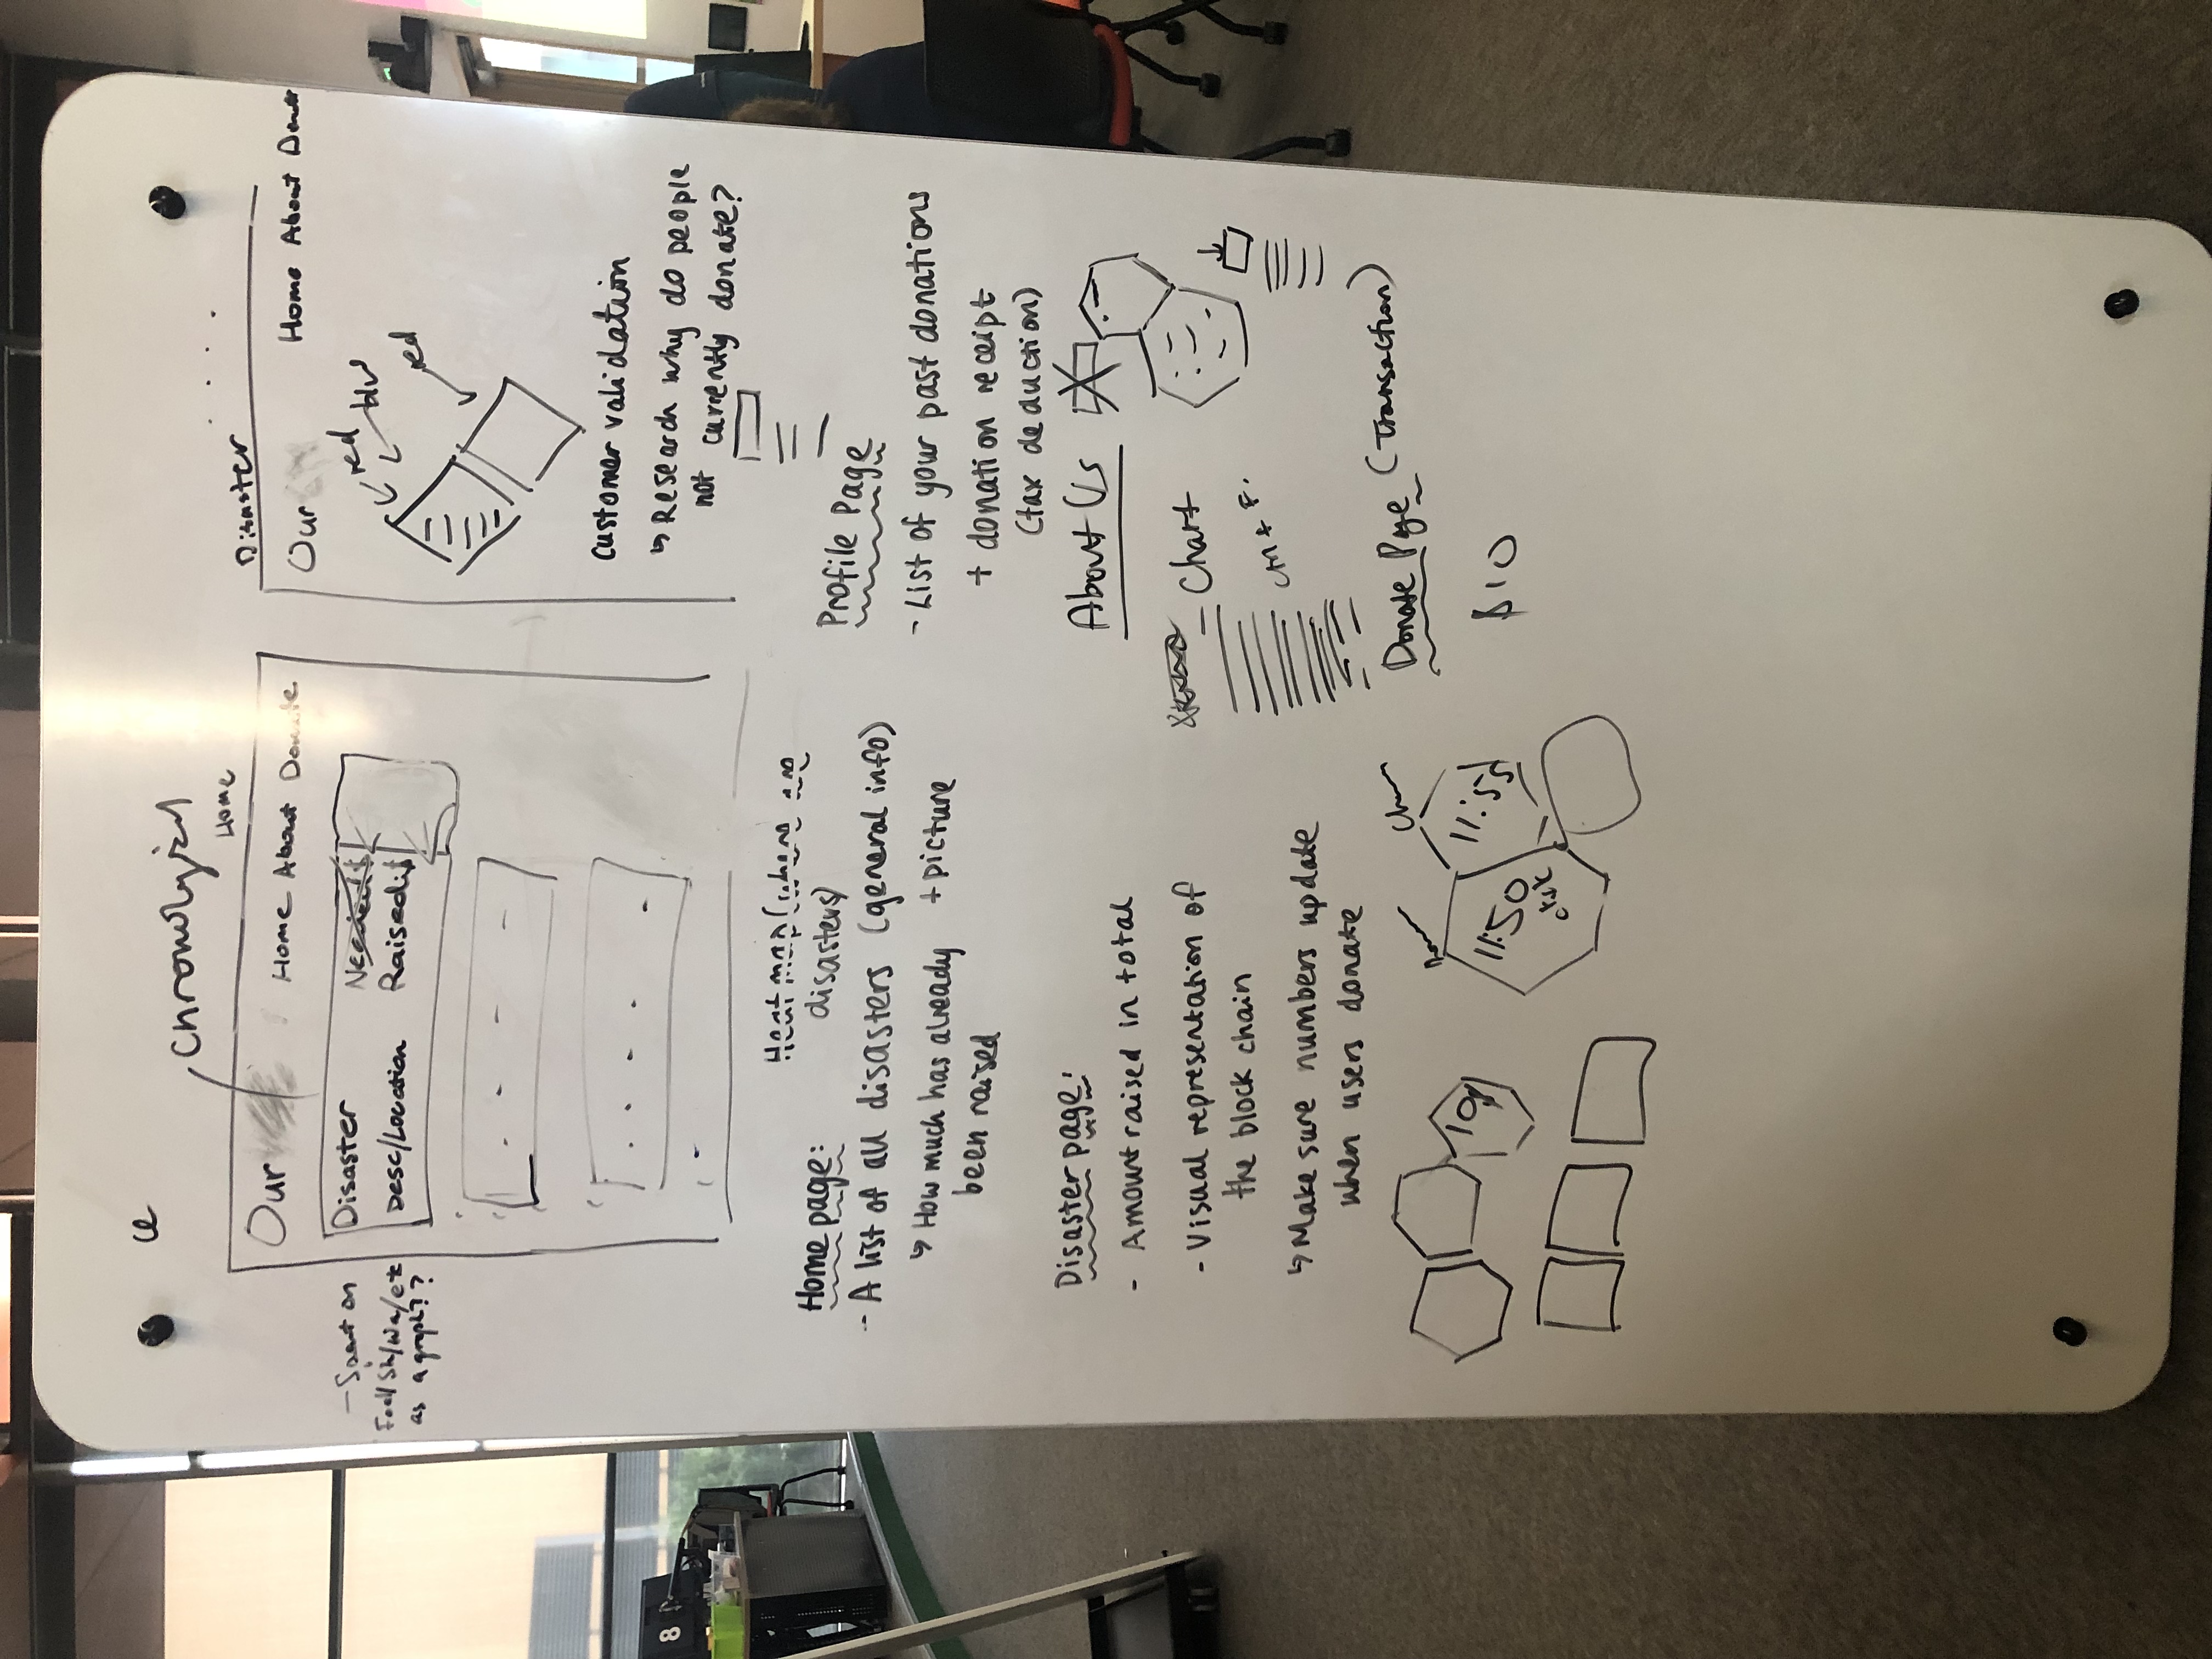 Chronological
Home
Our
Home About Donate
Disaster
Raised:$
Desc/Location
- Spent on
as a graph??
Heat map (where are
disasters)
Home page:
- A list of all disasters (general info)
↳ How much has already + picture
been raised
Disaster page:
- Amount raised in total
- Visual representation of
the block chain
↳ Make sure numbers update
when users donate
11:50
11:55
Disaster
Our
Home About Donate
red
blu
red
Customer validation
↳ Research why do people
not currently donate?
Profile Page
- List of your past donations
+ donation receipt
(tax deduction)
About Us
- Chart
Donate Page (Transaction)
$10
8